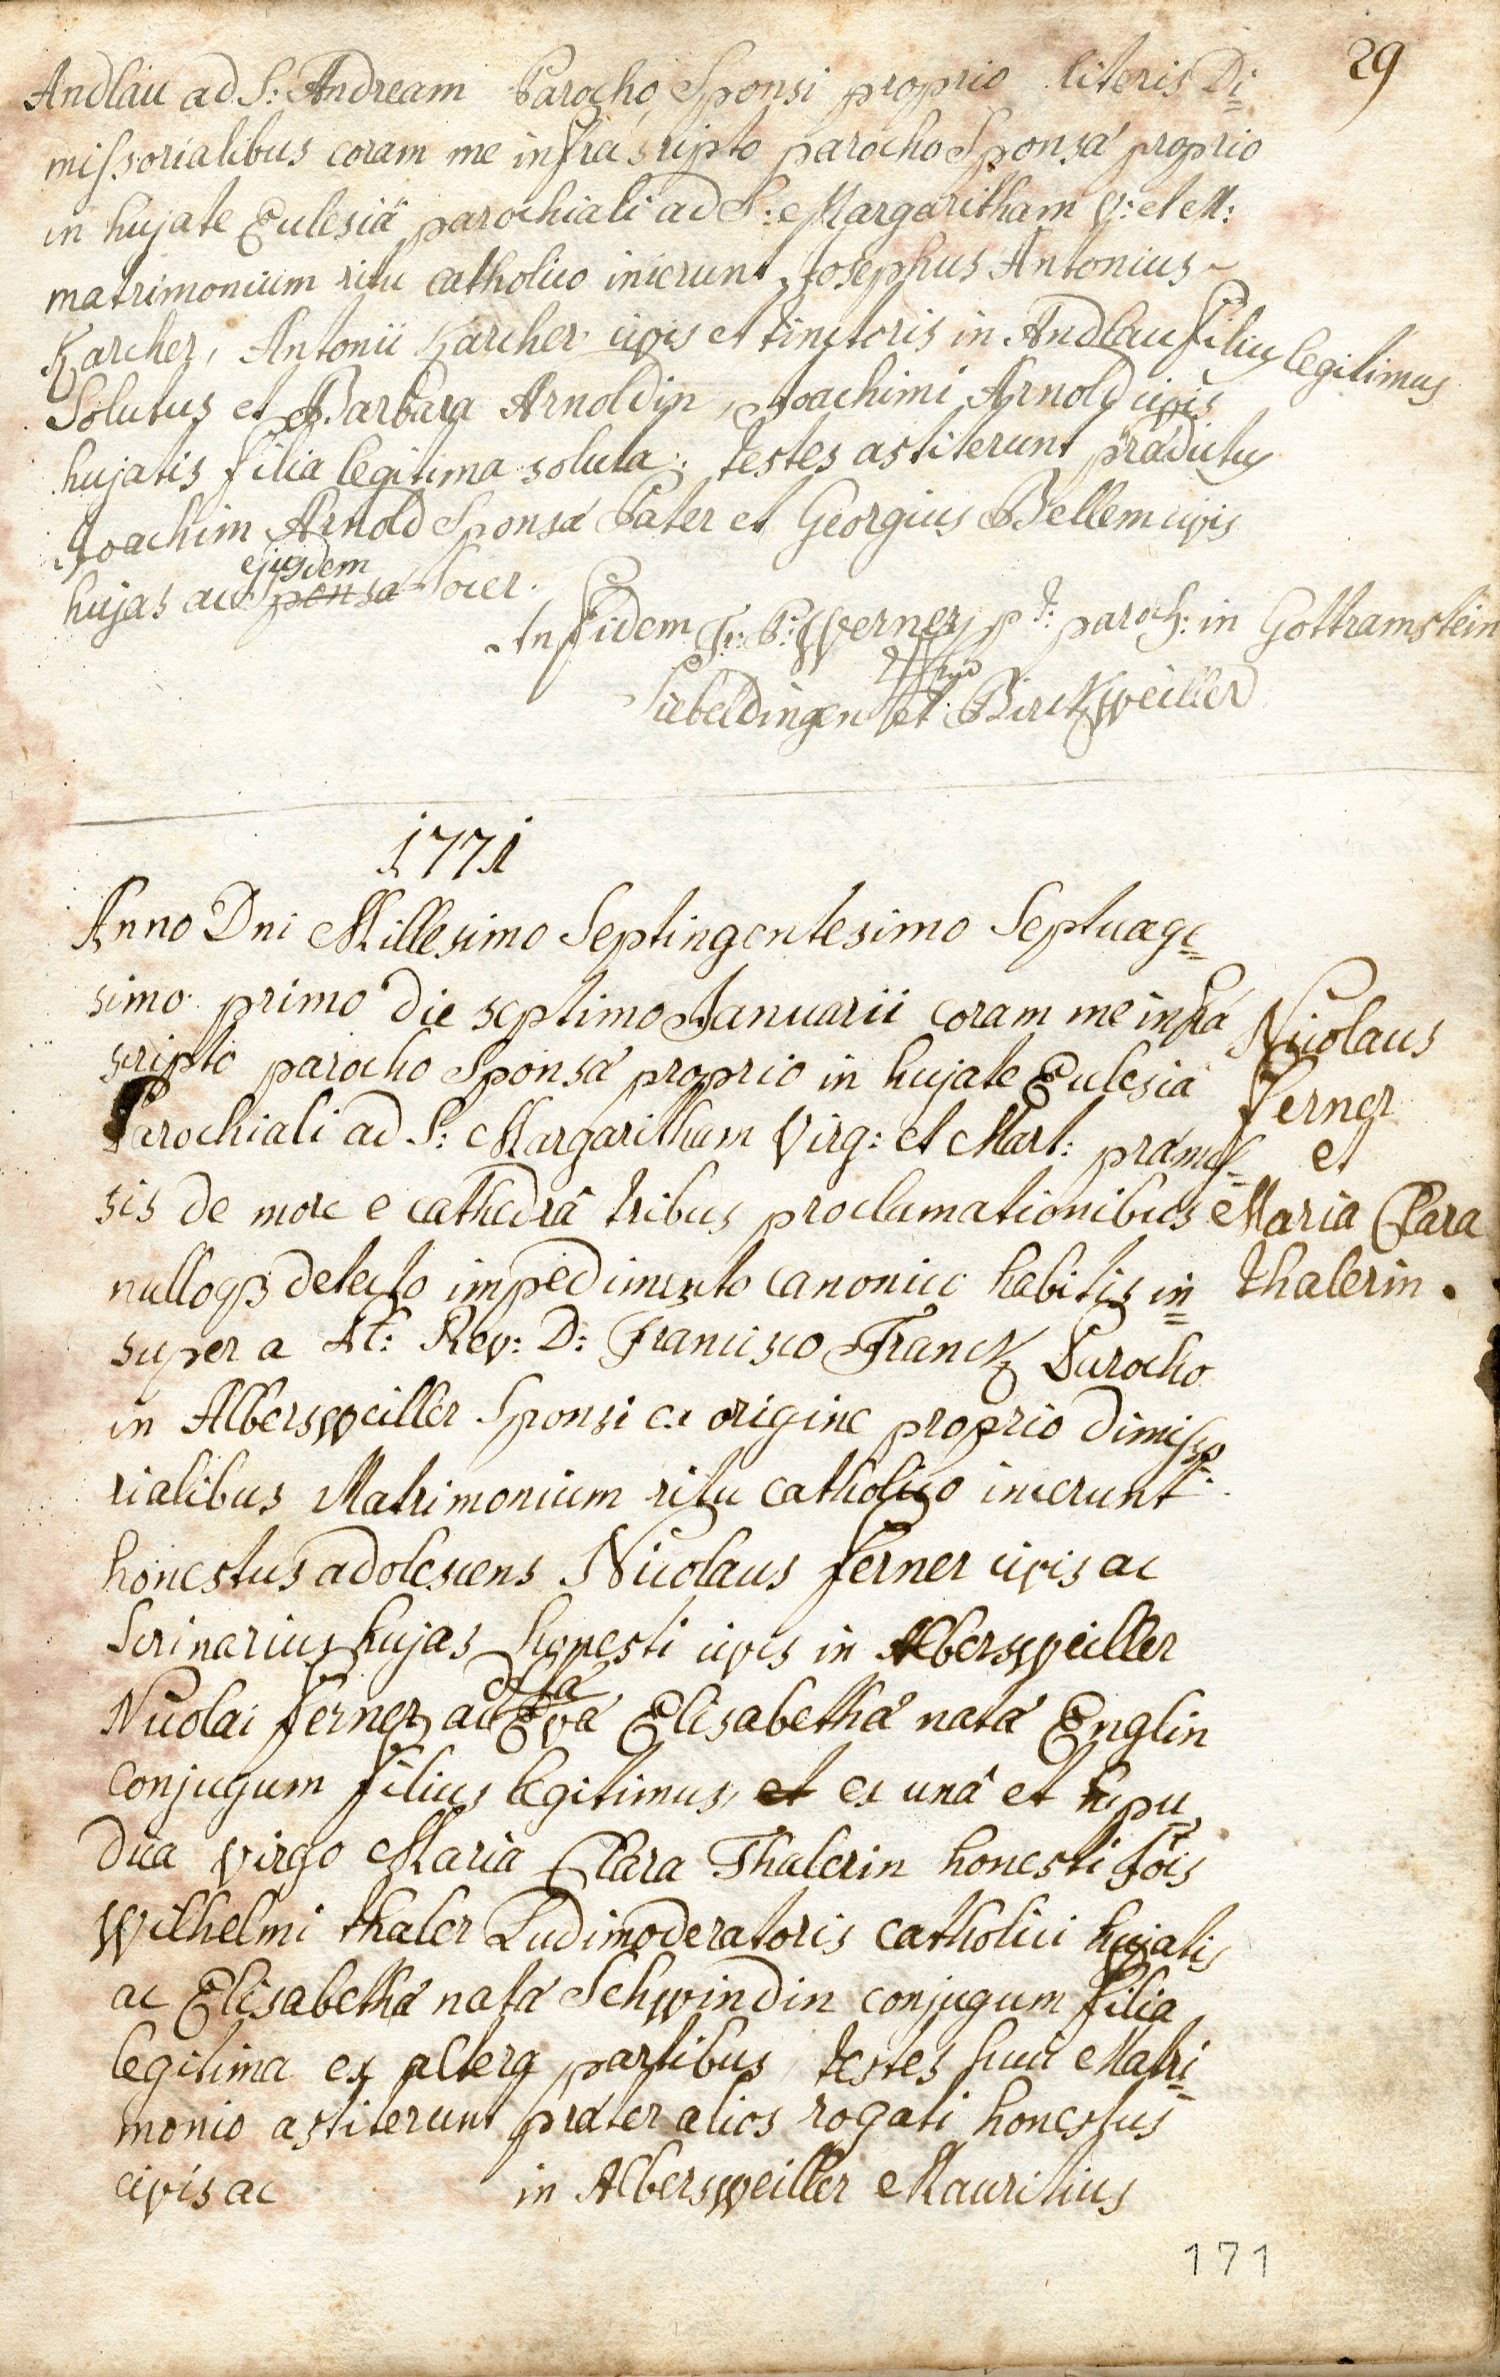 29
Andlau ad S: Andream Parocho Sponsi proprio literis Di=
missorialibus coram me infra scripto parocho Sponsæ proprio
in hujate Ecclesiâ parochiali ad S: Margaritham V: et M:
matrimonium ritu catholico inierunt Josephus Antonius
Karcher, Antonii Karcher civis et tinctoris in Andlau filius legitimus
Solutus et Barbara Arnoldin, Joachimi Arnold civis
hujatis filia legitima soluta. testes astiterunt prædictus
Joachim Arnold Sponsæ Pater et Georgius Bellem civis
hujas ac ejusdem sponsæ Socer.
In fidem Fr: P: Werner p.t: paroch: in Gottramstein
Siebeldingen et Birckweiller
1771
Anno Dni Millesimo Septingentesimo Septuage=
simo primo die septimo Januarii coram me infra
scripto parocho Sponsæ proprio in hujate Ecclesiâ
Parochiali ad S: Margaritham Virg: et Mart: præmis=
sis de more e cathedrâ tribus proclamationibus
nulloq3 detecto impedimento canonico habitis in=
super a Rev: D: Francisco Franck Parocho
in Albersweiller Sponsi ex origine proprio dimisso=
rialibus Matrimonium ritu catholico inierunt
honestus adolescens Nicolaus ferner civis ac
Scrinarius hujas honesti civis in Albersweiller
Nicolai ferner ac Eva Elisabethæ natæ Englin
conjugum filius legitimus, et ex unâ et pu
dica virgo Maria Clara Thalerin honesti
Wilhelmi thaler Ludimoderatoris catholici hujatis
ac Elisabethæ natæ Schwindin conjugum filia
legitima ex altera partibus, testes huic Matri=
monio astiterunt præter alios rogati honestus
civis ac in Albersweiller Mauritius
Nicolaus
ferner
et
Maria Clara
thalerin.
171